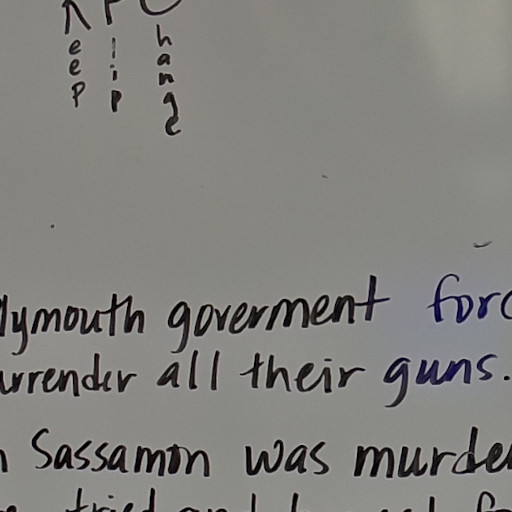 Keep Flip Change
lymouth goverment forc
urrender all their guns.
n Sassamon was murder
tried and